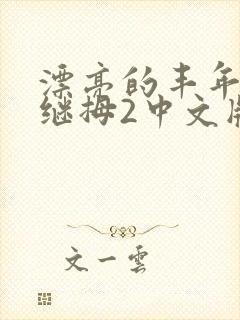 漂亮的丰年
继拇2中文版
文一雲